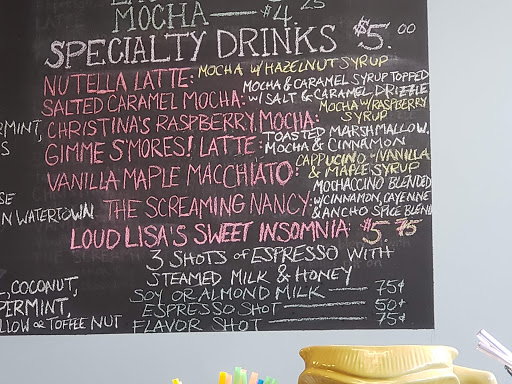 MOCHA — $4.25
SPECIALTY DRINKS $5.00
NUTELLA LATTE: MOCHA W/ HAZELNUT SYRUP
SALTED CARAMEL MOCHA: MOCHA & CARAMEL SYRUP TOPPED W/ SALT & CARAMEL DRIZZLE
CHRISTINA'S RASPBERRY MOCHA: MOCHA W/ RASPBERRY SYRUP
GIMME S'MORES! LATTE: TOASTED MARSHMALLOW, MOCHA & CINNAMON
VANILLA MAPLE MACCHIATO: CAPPUCINO W/ VANILLA & MAPLE SYRUP
THE SCREAMING NANCY: MOCHACCINO BLENDED W/ CINNAMON, CAYENNE & ANCHO SPICE BLEND
LOUD LISA'S SWEET INSOMNIA: $5.75
3 SHOTS OF ESPRESSO WITH
STEAMED MILK & HONEY
SOY OR ALMOND MILK — 75¢
ESPRESSO SHOT — 50¢
FLAVOR SHOT — 75¢
ERMINT,
S
SE
N WATERTOWN
, COCONUT,
PERMINT,
LLOW OR TOFFEE NUT